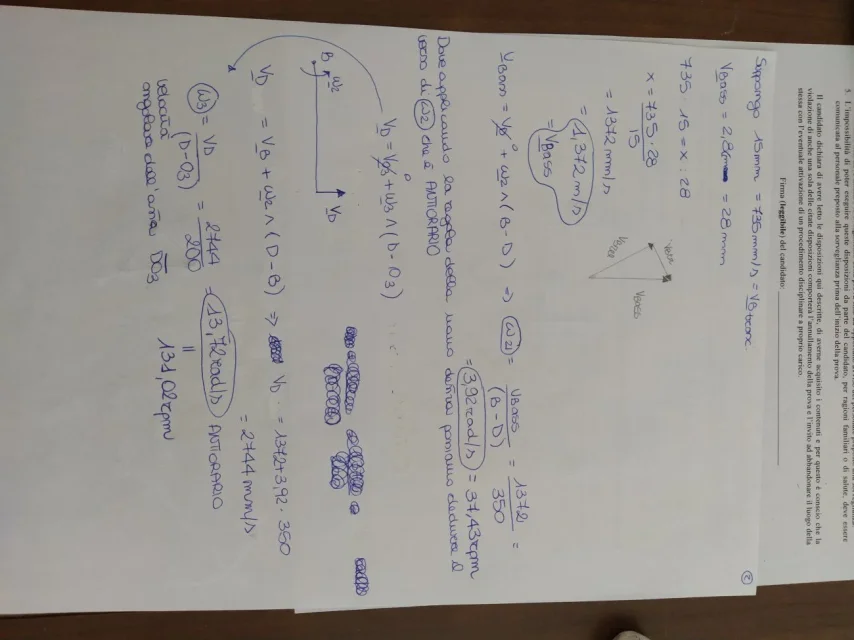 5. L'impossibilità di poter eseguire queste disposizioni da parte del candidato, per ragioni familiari o di salute, deve essere
comunicata al personale preposto alla sorveglianza prima dell'inizio della prova.
Il candidato dichiara di avere letto le disposizioni qui descritte, di averne acquisito i contenuti e per questo è conscio che la
violazione di anche una sola delle citate disposizioni comporterà l'annullamento della prova e l'invito ad abbandonare il luogo della
stessa con l'eventuale attivazione di un procedimento disciplinare a proprio carico.
Firma (leggibile) del candidato:
2
Suppongo 15mm = 735mm/s =
VBass = 2,8cm = 28mm
735 : 15 = x : 28
x = 735 · 28
15
= 1372 mm/s
= 1,372 m/s
= VBass
VBass
VBass = + ω2 ∧ (B - D) => ω2 = VBass = 1372 =
(B - D) 350
= 3,92 rad/s = 37,43 rpm
Dove applicando la regola della mano destra possiamo dedurre il
verso di ω2 che è ANTIORARIO
VD = + ω3 ∧ (D - O3)
B ω2
VD
VD = VB + ω2 ∧ (D - B) => VD = 1372 + 3,92 · 350
= 2744 mm/s
ω3 = VD = 2744 = 13,72 rad/s ANTIORARIO
(D - O3) 200
=
131,02 rpm
velocità
angolare dell'asta DO3